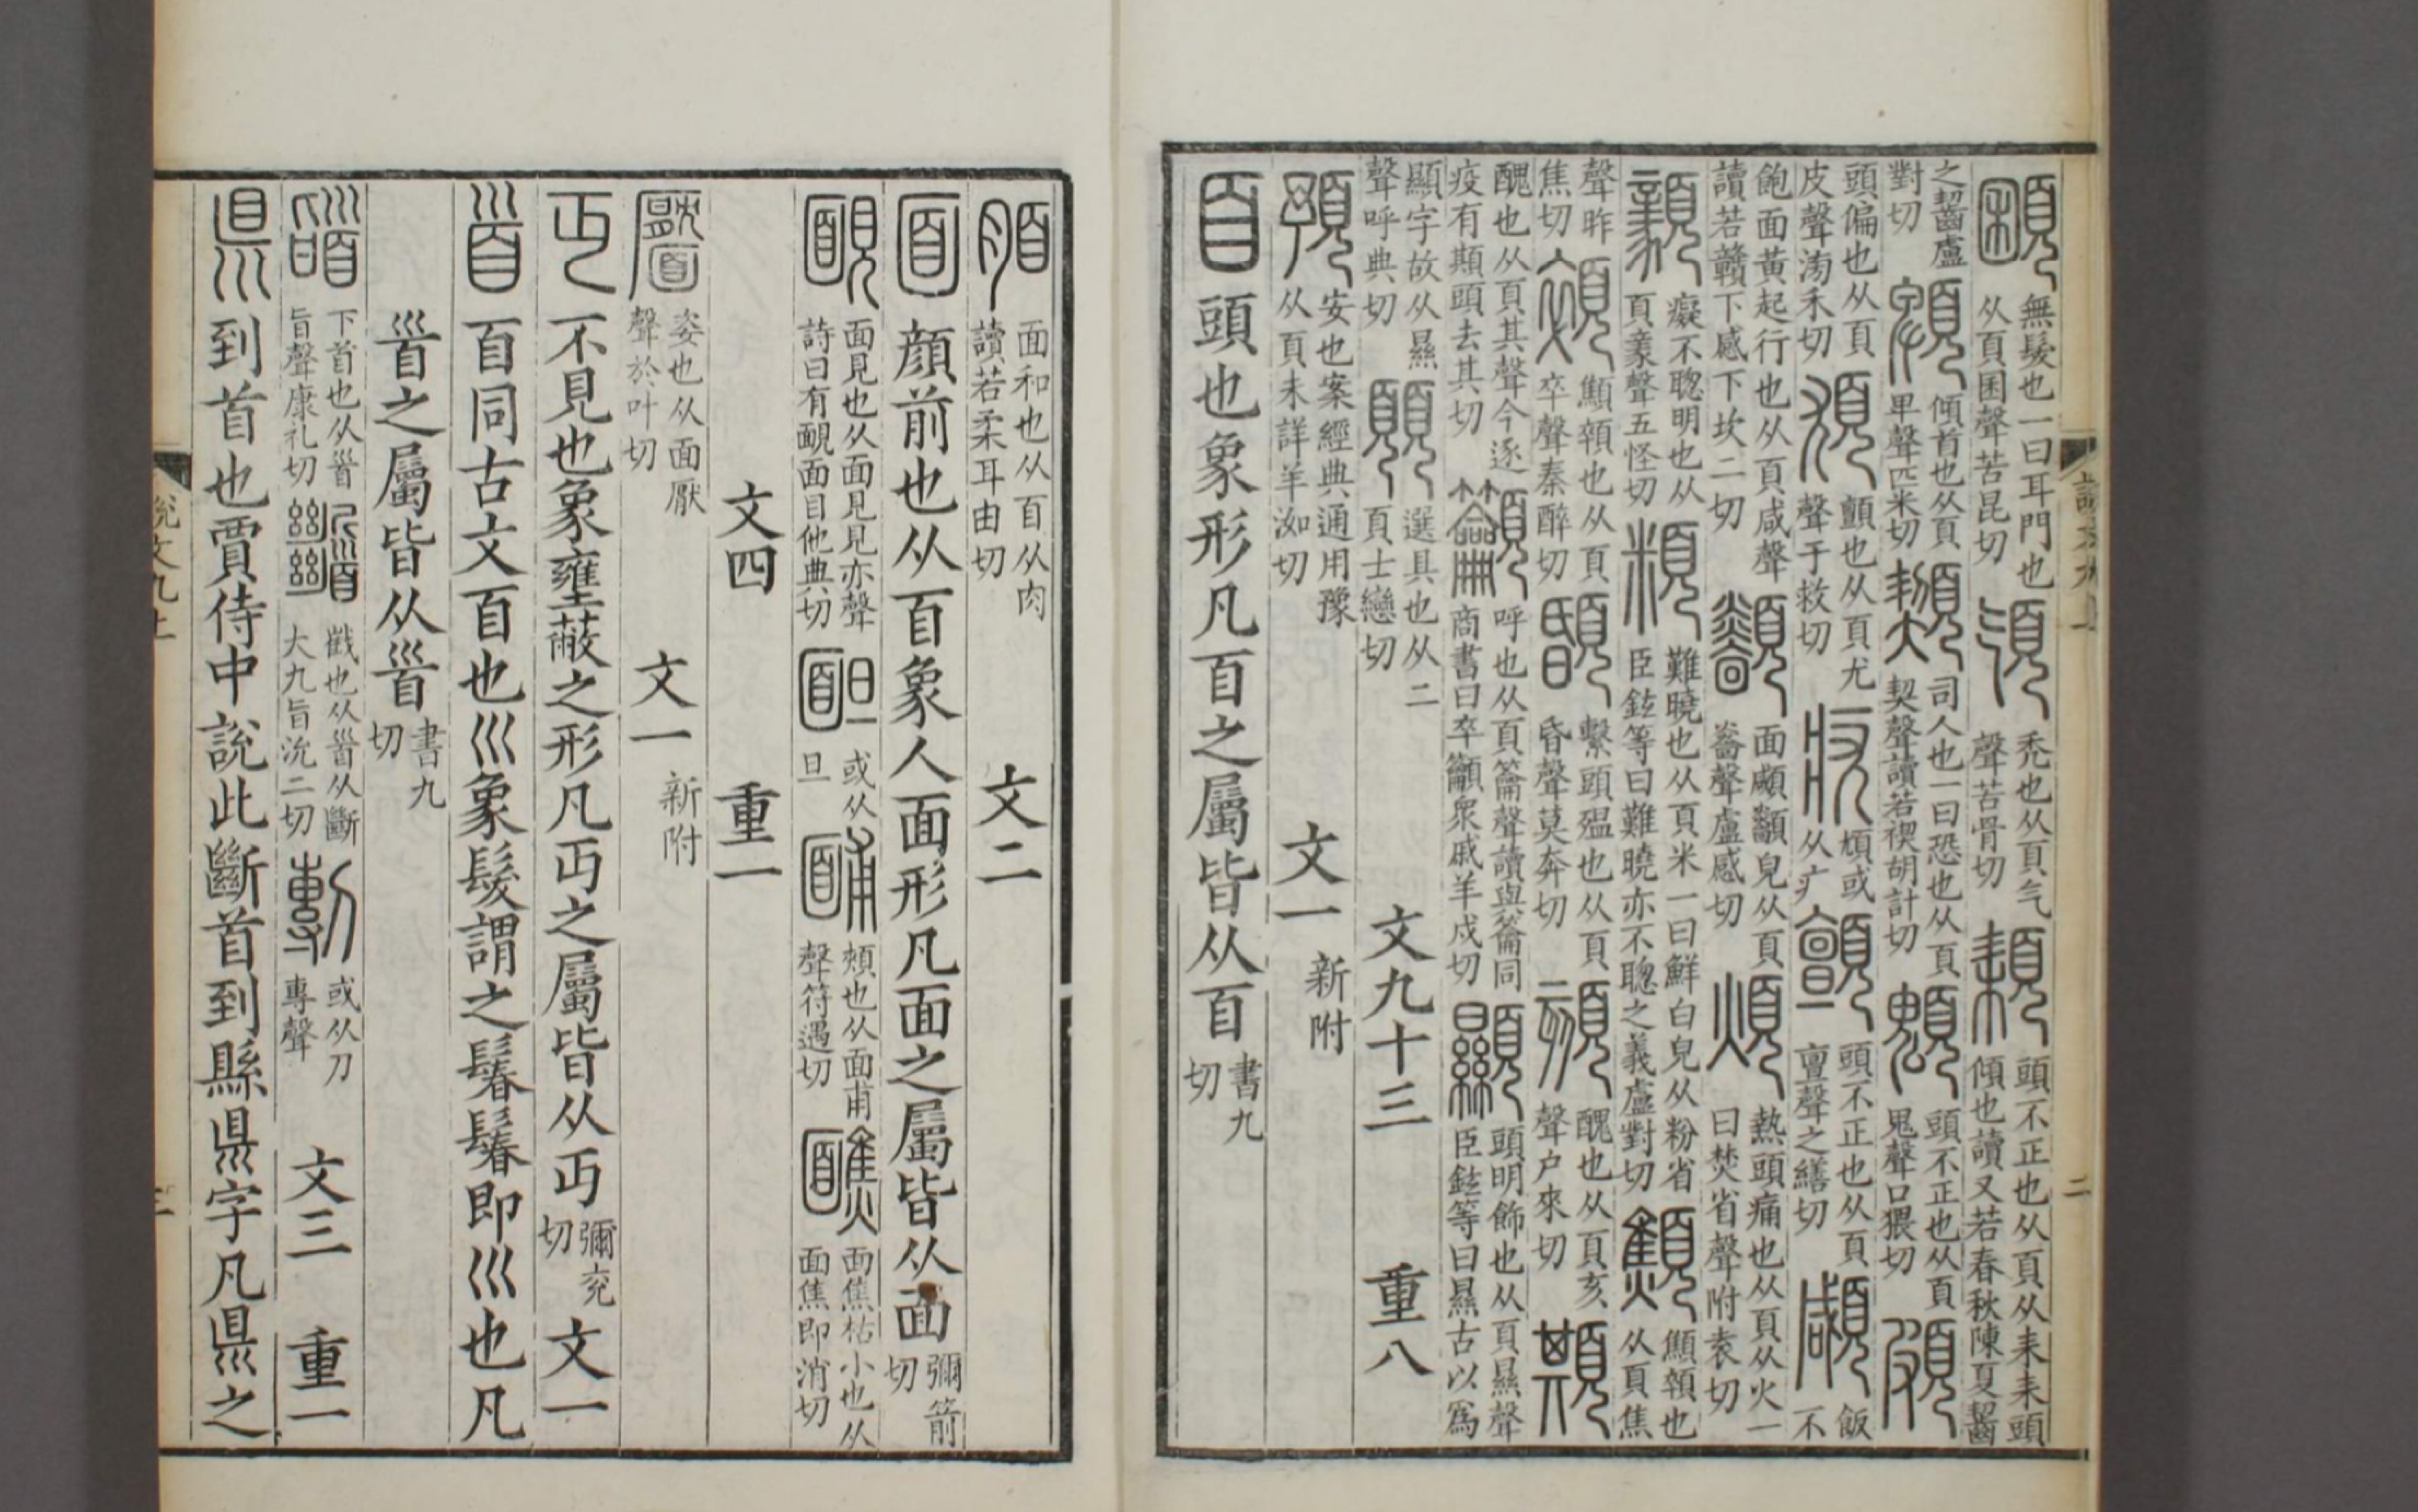 顐無髮也一曰耳門也从頁囷聲苦昆切𩑔禿也从頁气聲苦骨切頛頭不正也从頁从耒耒頭傾也讀又若春秋陳夏齧
之齧盧對切䫌傾首也从頁卑聲匹米切䫔司人也一曰恐也从頁契聲讀若禊胡計切頭不正也从頁鬼聲口猥切頗
頭偏也从頁皮聲滂禾切頄顫也从頁尤聲于救切疣頄或从疒顫頭不正也从頁亶聲之繕切顑飯不
飽面黃起行也从頁咸聲讀若贛下感下坎二切面顑顲皃从頁聲盧感切煩熱頭痛也从頁从火一曰焚省聲附袁切
顡癡不聰明也从頁豙聲五怪切頪難曉也从頁米一曰鮮白皃从粉省臣鉉等曰難曉亦不聰之義盧對切顦顦顇也从頁焦
聲昨焦切顇顦顇也从頁卒聲秦醉切繫頭殟也从頁昏聲莫奔切頦醜也从頁亥聲户來切䫏
醜也从頁其聲今逐疫有䫏頭去其切籲呼也从頁籥聲讀與籥同商書曰率籲眾戚羊戍切顯頭明飾也从頁㬎聲臣鉉等曰㬎古以為
顯字故从㬎聲呼典切顨選具也从二頁士戀切 文九十三 重八
預安也案經典通用豫从頁未詳羊洳切 文一新附
𦣻頭也象形凡𦣻之屬皆从𦣻書九切
脜面和也从𦣻从肉讀若柔耳由切 文二
面顔前也从𦣻象人面形凡面之屬皆从面彌箭切
靦面見也从面見見亦聲詩曰有靦面目他典切䩆或从旦䩉頰也从面甫聲符遇切醮面焦枯小也从面焦即消切
文四 重一
靨姿也从面厭聲於叶切 文一新附
丏不見也象壅蔽之形凡丏之屬皆从丏彌兖切 文一
𩠐𦣻同古文𦣻也巛象髮謂之鬊鬊即巛也凡
𩠐之屬皆从𩠐書九切
䭫下首也从𩠐旨聲康礼切𩠹𢧵也从𩠐从斷大九旨沇二切剸或从刀專聲 文三 重一
県到首也賈侍中說此斷首到縣県字凡県之
說文九上